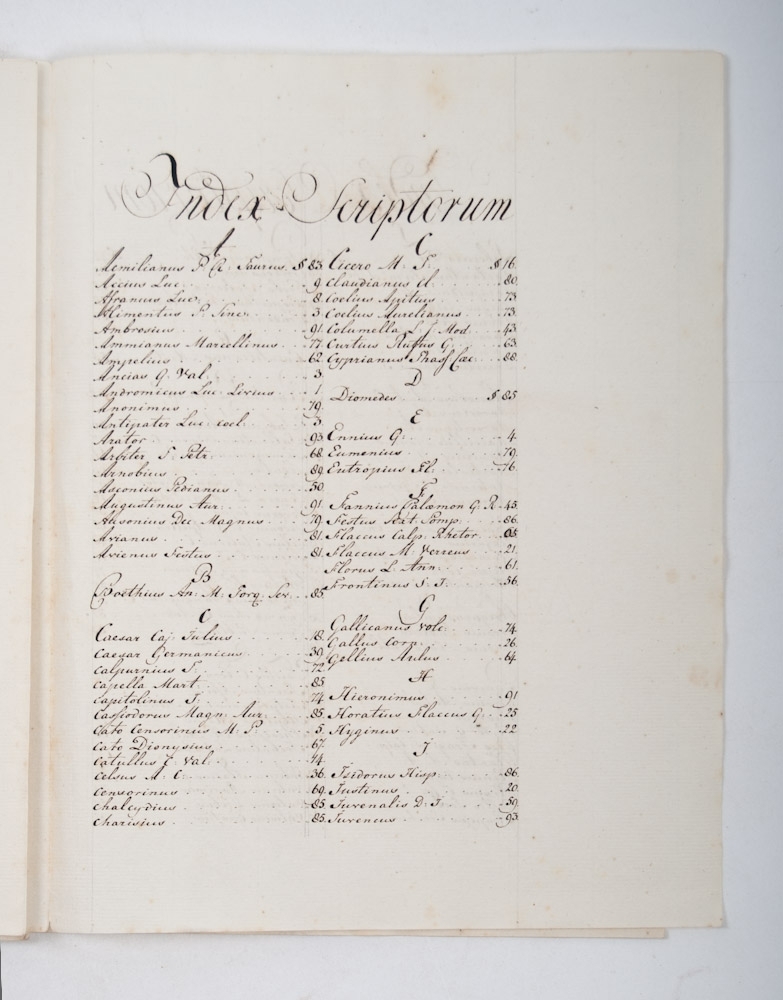 Index Scriptorum
A
Aemilianus P. R. Taurus. § 83.
Accius Luc. 9.
Afranius Luc. 8.
Alimentus P. Sinc. 3
Ambrosius 91.
Ammianus Marcellinus 77
Ampelius 62.
Ancias Q. Val. 3.
Andronicus Luc. Livius 1.
Anonimus 79.
Antipater Luc. coel. 3.
Arator 93.
Arbiter T. Petr. 68.
Arnobius 89.
Asconius Pedianus 50.
Augustinus Aur. 91.
Ausonius Dec. Magnus 79.
Avianus 81.
Avienus Festus 81.
B
Boethius An. M. Torq. Sev. 85.
C
Caesar Caj. Julius 18.
Caesar Germanicus 39.
Calpurnius T. 72.
Capella Mart. 85.
Capitolinus J. 74.
Cassiodorus Magn. Aur. 85.
Cato Censorinus M. P. 5.
Cato Dionysius 67.
Catullus C. Val. 14.
Celsus A. C. 36.
Censorinus 69.
Chalcydius 85.
Charisius 85.
C
Cicero M. T. § 16.
Claudianus Cl. 80.
Coelius Apitius 73
Coelius Aurelianus 73.
Columella L. J. Mod. 43
Curtius Ruffus Q. 63
Cyprianus Thasc. Cæc. 88.
D
Diomedes § 85
E
Ennius Q. 4.
Eumenius 79.
Eutropius Fl. 76.
F
Fannius Palæmon Q. R. 45.
Festus Sext. Pomp. 66.
Flaccus Calp. Rhetor
Flaccus M. Verreus 21.
Florus L. Ann. 61.
Frontinus S. J. 56.
G
Gallicanus Volc. 74.
Gallus Corn. 26.
Gellius Aulus 64.
H
Hieronimus 91
Horatius Flaccus Q. 25
Hyginus 22
J
Isidorus Hisp. 86.
Justinus 20.
Juvenalis D. J. 59.
Juvencus 93.